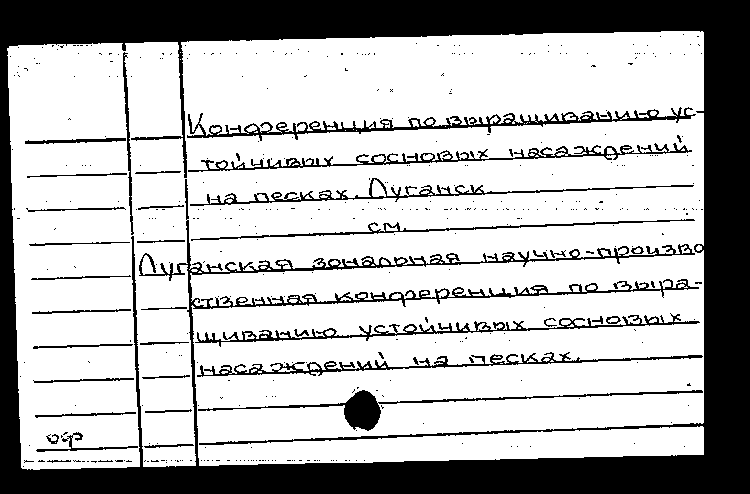 Конференция по выращиванию ус-
тойчивых сосновых насаждений
на песках. Луганск.
см.
Луганская зональная научно-произво
ственная конференция по выра-
щиванию устойчивых сосновых
насаждений на песках.